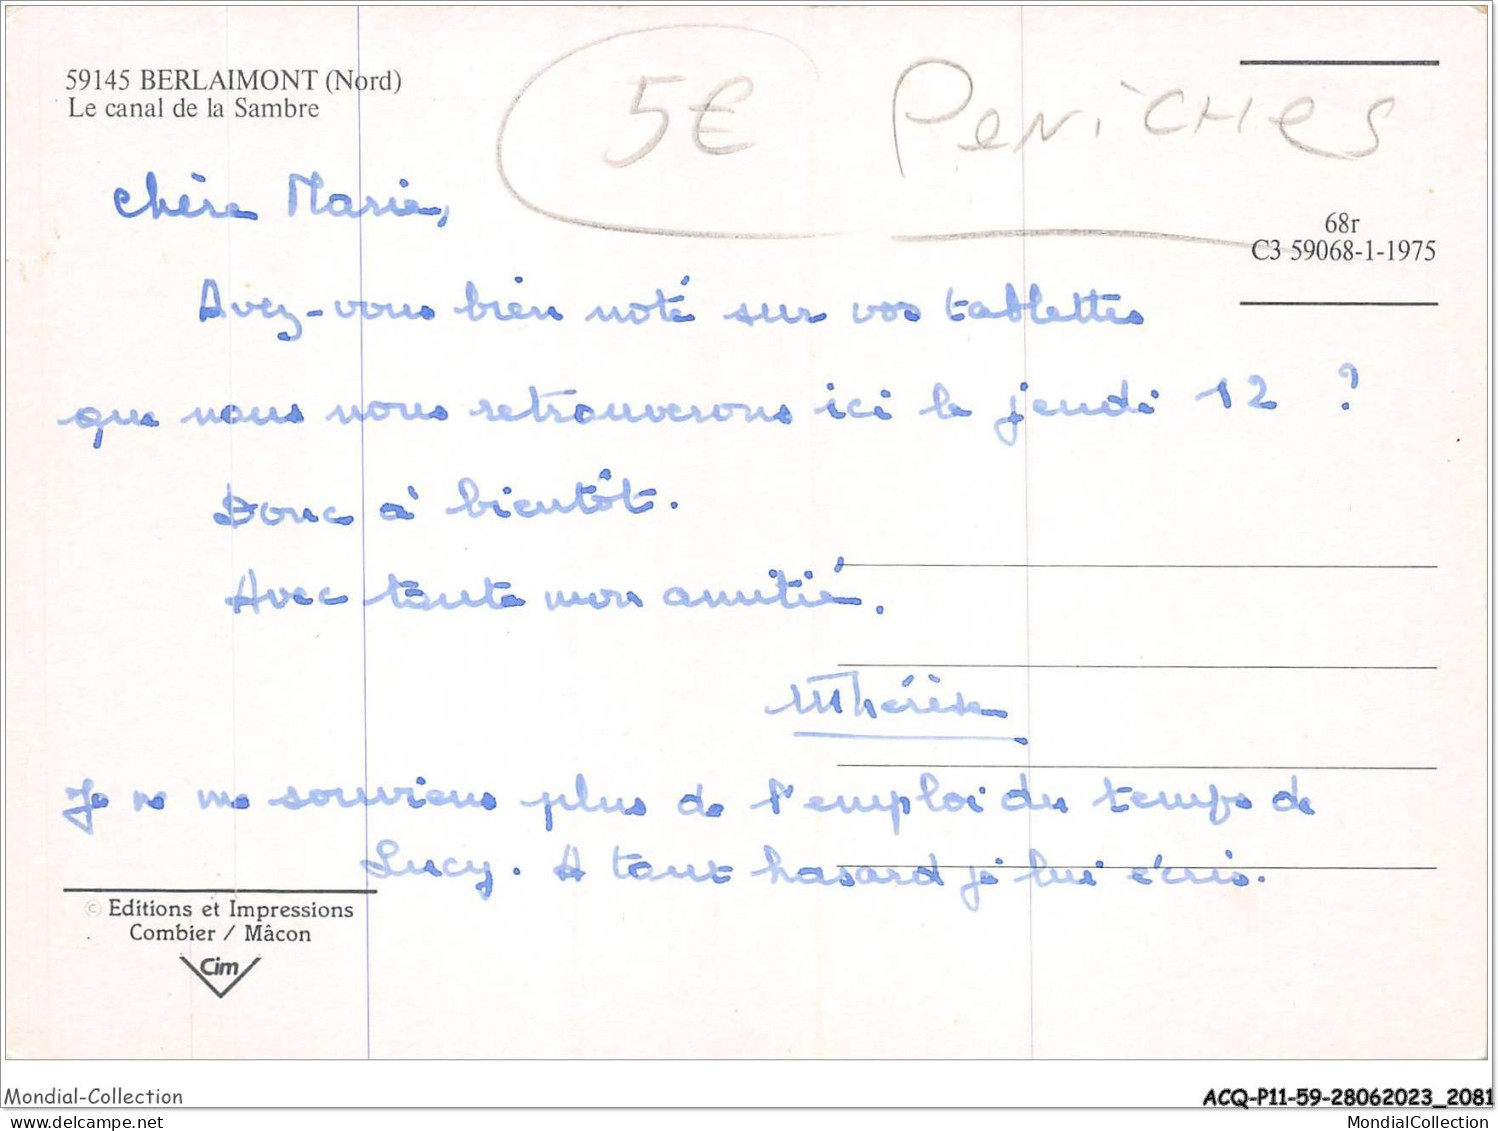 59145 BERLAIMONT (Nord)
Le canal de la Sambre
5€ PeNiCHes
68r
C3 59068-1-1975
Chère Marie,
Avez-vous bien noté sur vos tablettes
que nous nous retrouverons ici le jeudi 12 ?
Donc à bientôt.
Avec toute mon amitié.
MThérèse
Je ne me souviens plus de l'emploi du temps de
Lucy. A tout hasard je lui écris.
© Editions et Impressions
Combier / Mâcon
Cim
Mondial-Collection
ACQ-P11-59-28062023_2081
delcampe.net
MondialCollection